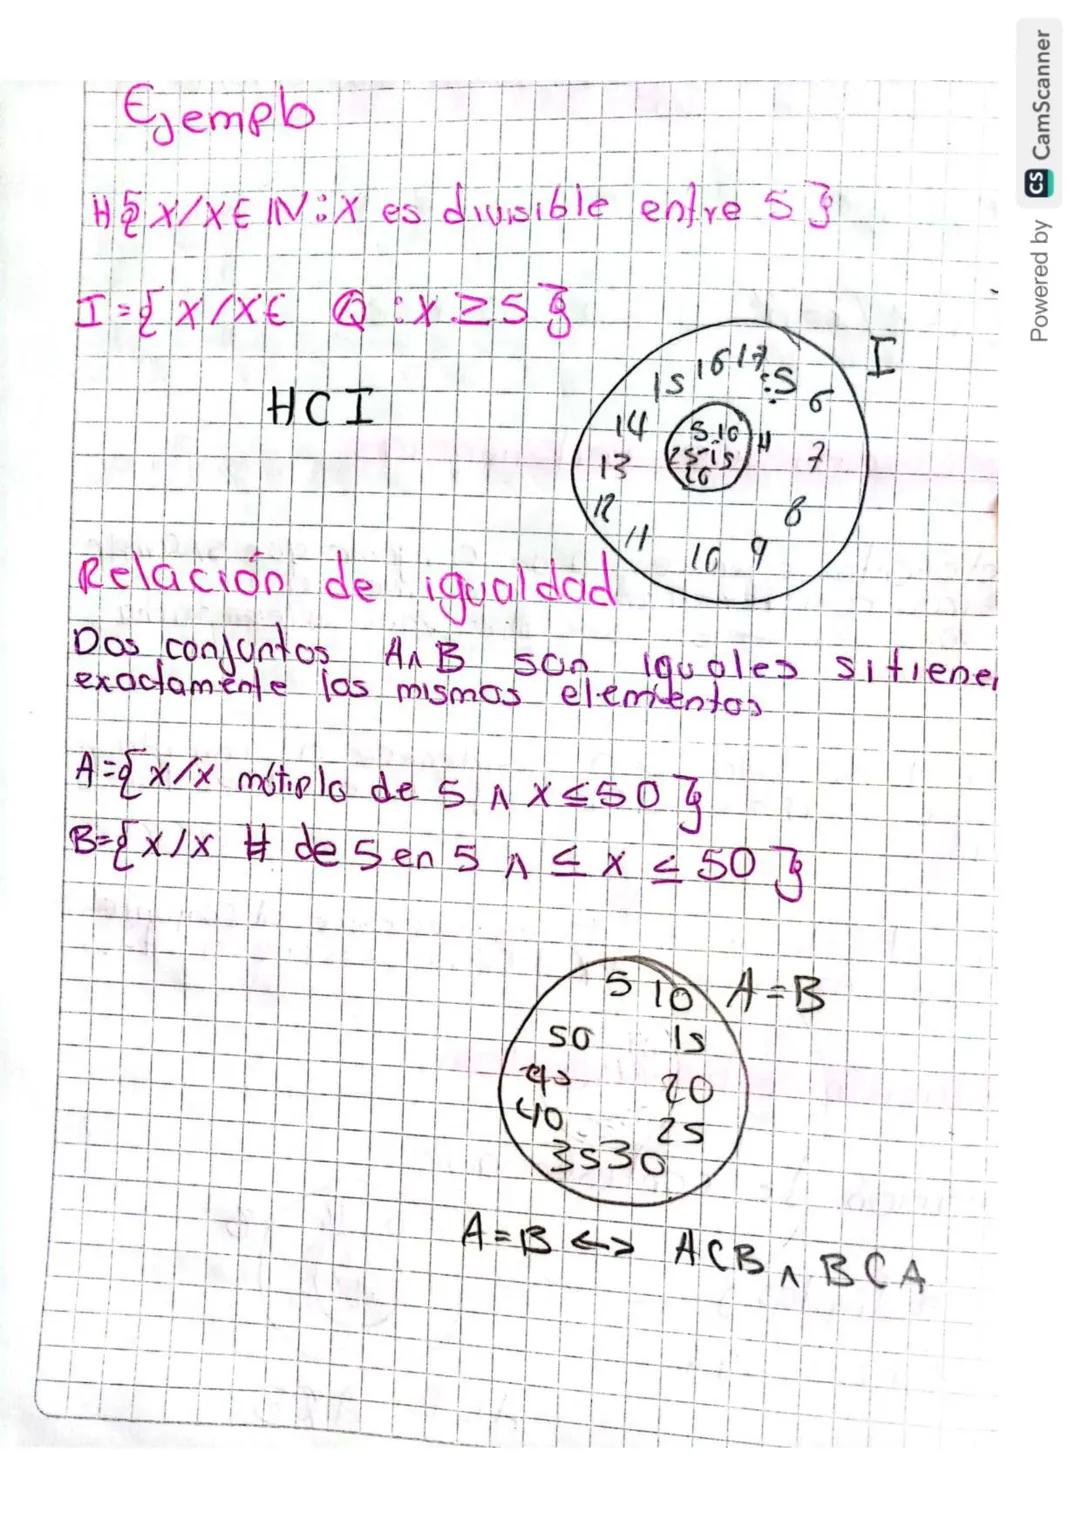 Ejemplo
H{x/x∈ IN:x es divisible entre 5}
I={x/x∈ Q :x≥5}
I
16 17
15 :5 6
H⊂I
14 5-10 H
13 25-15 7
20
12 8
11 10 9
Relación de igualdad
Dos conjuntos A∧B son iguales si tienen
exactamente los mismos elementos
A={x/x mútiplo de 5 ∧ x≤50}
B={x/x # de 5 en 5 ∧ ≤ x ≤ 50}
5 10 A=B
50 15
45 20
40 25
35 30
A=B ↔ A⊂B ∧ B⊂A
Powered by CS CamScanner